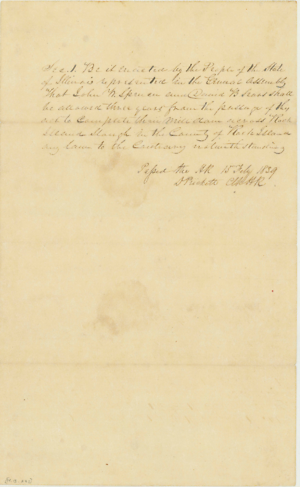 Sec. 1. Be it enacted by the People of the State
of Illinois represented in the General Assembly
That John W Spencer and David B Sears shall
be allowed three years from the passage of this
act to complete their Mill dam across Rock
Island Slough in the County of Rock Island
any law to the Contrary notwithstanding
Passed the H.R. 15 Feby 1839
D Prickett C.H.R.